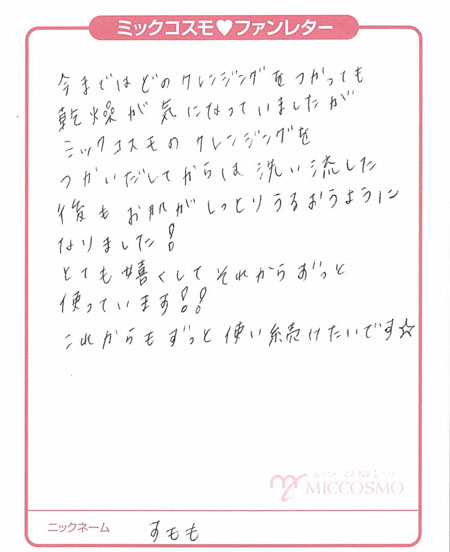 ミックコスモ♥ファンレター
今まではどのクレンジングをつかっても
乾燥が気になっていましたが
ミックコスモのクレンジングを
つかいだしてからは洗い流した
後もお肌がしっとりうるおうように
なりました!
とても嬉くしてそれからずっと
使っています!!
これからもずっと使い続けたいです☆
MICCOSMO
ニックネーム
すもも